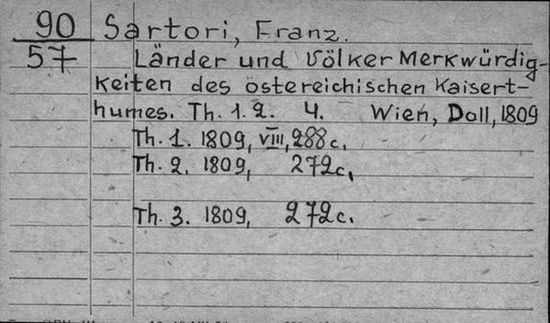 90 Sartori, Franz.
57 Länder und Völker Merkwürdig-
keiten des östereichischen Kaisert-
humes. Th. 1. 2. 4. Wien, Doll, 1809
Th. 1. 1809, VIII, 288 c.
Th. 2. 1809, 272 c.
Th. 3. 1809, 272 c.